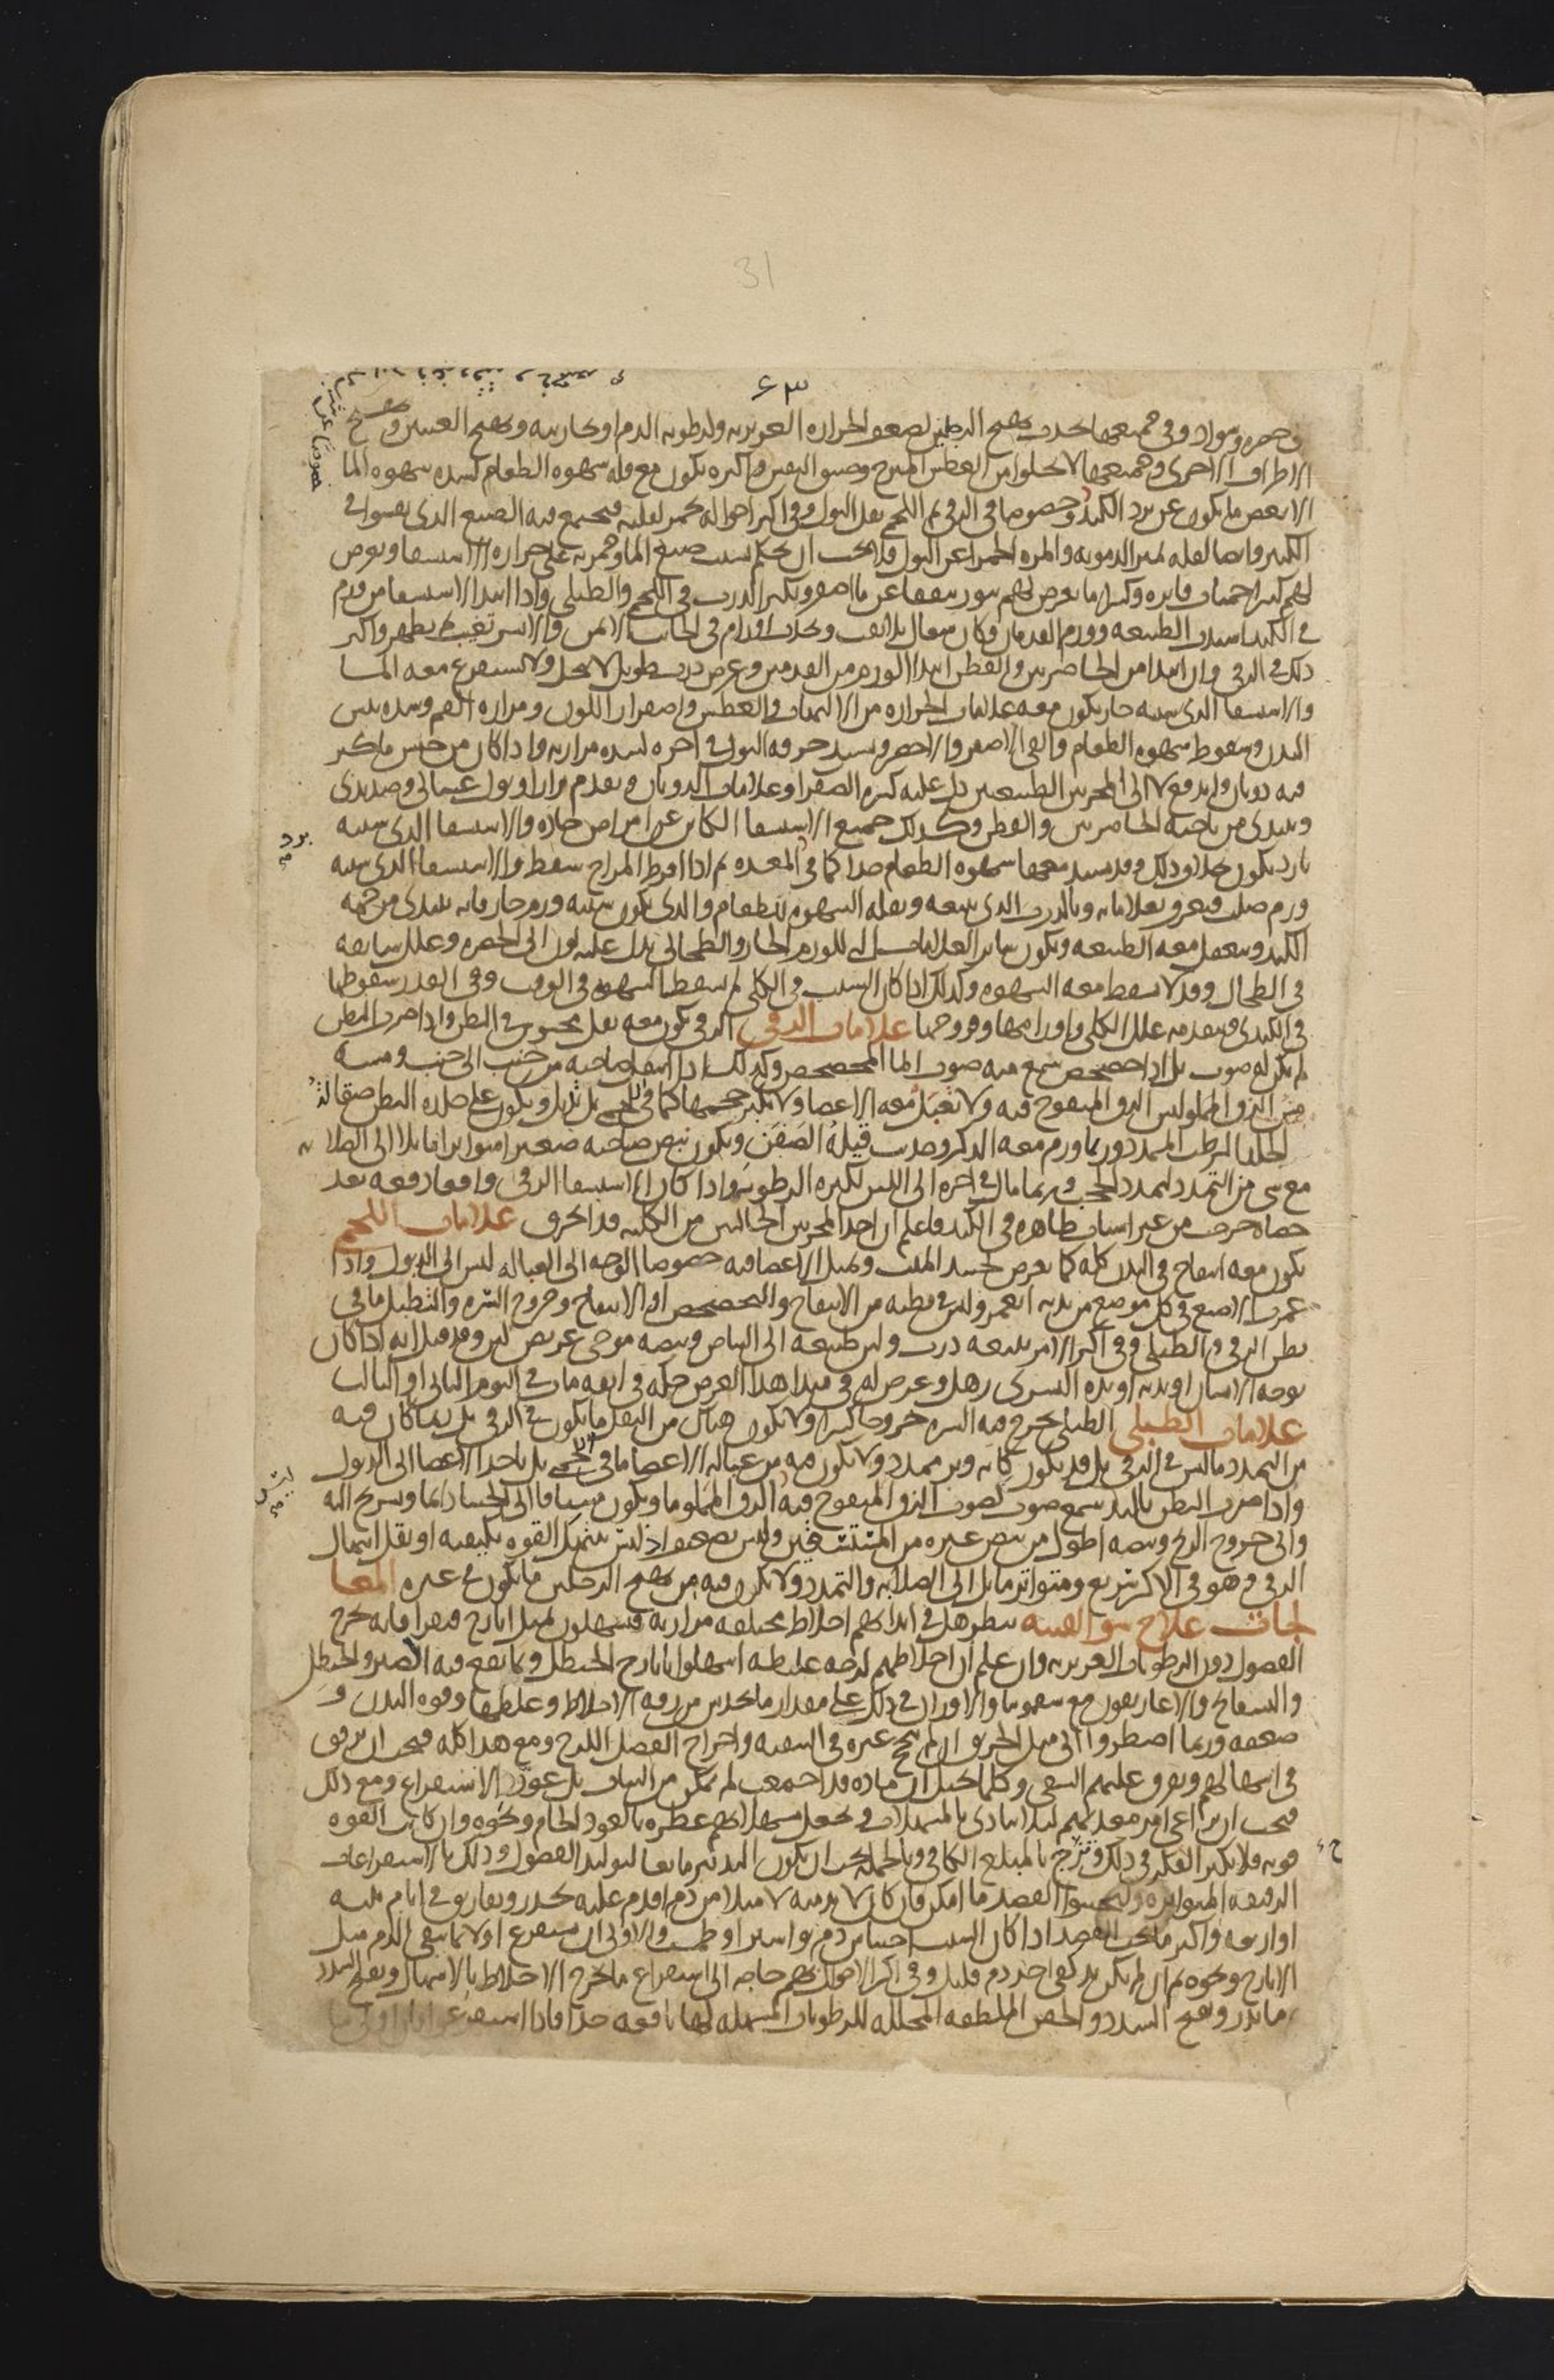 31
٤٣
وفي جميعها يحدث تهيج الرجلين لضعف الحرارة الغريزية ولرطوبة الدم او بخاريته وتهيج العينين وتهيج
الاطراف الاخرى وجميعها لا يخلوا من العطش المبرح وضيق النفس واكثره يكون مع قلة شهوة الطعام لشدة شهوة الما
الا بعض ما يكون عن برد الكبد وخصوصا في الزقي ثم اللحمي يقل البول وفي اكثر احواله يحمر لقلته فيجتمع فيه الصبغ الذي يفشوا في
الكثير وايضا لقلة تميز الدموية والمرة الحمرا عن البول فلا يجب ان يحكم بسبب صبغ الما وحمرته على حرارة الاستسقا ويعرض
لهم كثيرا حميات فاترة وكثيرا ما يعرض لهم بثور تتفقا عن ما اصفر ويكثر الذرب في اللحمي والطبلي واذا ابتدا الاستسقا من ورم
في الكبد اشتدت الطبيعة وورم القدمان وكان سعال بلا نفث ويحدث اورام في الجانب الايمن والايسر تغيب ثم تظهر واكثر
ذلك في الزقي وان ابتدا من الخاصرتين والقطن ابتدا الورم من القدمين وعرض ذرب طويل لا ينحل ولا يستفرغ معه الما
والاستسقا الذي سببه حار يكون معه علامات الحرارة من الالتهاب والعطش واصفرار اللون ومرارة الفم وشدة يبس
البدن وسقوط شهوة الطعام والقي الاصفر والاخضر ويشتد حرقة البول في اخره لشدة مراريته واذا كان من جنس ما كثر
فيه ذوبان واندفع لا الى المجريين الطبيعيين دل عليه كثرة الصفرا وعلامات الذوبان وتقدم براز او بول غسالي وصديدي
ويبتدي من ناحية الخاصرتين والقطن وكذلك جميع الاستسقا الكاين عن امراض حادة والاستسقا الذي سببه
بارد يكون بخلاف ذلك وقد يشتد معها شهوة الطعام جدا كما في المعدة ثم اذا افرط المزاج سقط والاستسقا الذي سببه
ورم صلب فيعرف بعلاماته وبالذرب الذي يتبعه وبقلة الشهوة للطعام والذي يكون سببه ورم حار فانه يبتدي من جهة
الكبد وينعقل معه الطبيعة ويكون ساير العلامات التي للورم الحار والطحالي يدل عليه لون الى الخضرة وعلل سابقة
في الطحال وقد لا تسقط معه الشهوة وكذلك اذا كان السبب في الكلى لم تسقط الشهوة في الوقت وفي القدر سقوطها
في الكبدي ويتقدمه علل الكلى واورامها وقروحها علامات الزقي الزقي يكون معه ثقل محسوس في البطن واذا ضرب البطن
لم يكن له صوت بل اذا خضخض سمع منه صوت الما المخضخض وكذلك اذا انتقل صاحبه من جنب الى جنب ومسه
مس الزق المملو ليس الزق المنفوخ فيه ولا تعبل معه الاعضا ولا يكبر حجمها كما في اللحمي بل تذبل ويكون على جلدة البطن صقالة
الجلد الرطب الممدد وربما ورم معه الذكر وحدثت قيلة الصفن ويكون نبض صاحبه صغيرا متواترا مايلا الى الصلابة
مع شي من التمدد لتمدد الحجب وربما مال في اخره الى اللين لكثرة الرطوبة واذا كان الاستسقا الزقي واقعا دفعه بعد
حصاة خرجت من غير اسباب ظاهرة في الكبد فاعلم ان احد المجريين الحالبين من الكلية قد انخرق علامات اللحمي
يكون معه انتفاخ في البدن كله كما يعرض لجسد الميت وتميل الاعضا فيه خصوصا الوجه الى العبالة ليس الى الذبول واذا
غمزت الاصبع في كل موضع من بدنه انغمر وليس في بطنه من الانتفاخ والتخضخض او الانتفاخ وخروج السرة والتطبل ما في
بطن الزقي والطبلي وفي اكثر الامر يتبعه ذرب ولين طبيعة الى البياض ونبضه موجي عريض لين وقد قيل انه اذا كان
بوجه الانسان او بدنه او يده اليسرى رهل وعرض له في مبدا هذا العرض حكة في انفه مات في اليوم الثاني او الثالث
علامات الطبلي الطبلي يخرج فيه السرة خروجا كثيرا ولا يكون هناك من الثقل ما يكون في الزقي بل ربما كان فيه
من التمدد ما ليس في الزقي بل قد يكون كانه وتر ممدد ولا يكون فيه من عبالة الاعضا ما في اللحمي بل ياخذ الاعضا الى الذبول
واذا ضرب البطن باليد سمع صوت كصوت الزق المنفوخ فيه لا الزق المملو ما ويكون مشتاقا الى الجشا دايما ويستريح اليه
والى خروج الريح ونبضه اطول من نبض غيره من المستسقين وليس بضعيف اذ ليس تنهك القوة بكيفيته او ثقل اثقال
الزقي وهو في الاكثر سريع ومتواتر مايل الى الصلابة والتمدد ولا يكون فيه من تهيج الرجلين ما يكون في غيره المعا
لجات علاج سو القنية ينظر هل في ابدانهم اخلاط مختلفة مرارية فيسهلون بمثل ايارج فيقرا فانه يخرج
الفضول دون الرطوبات الغريزية وان علم ان اخلاطهم لزجة غليظة اسهلوا بايارج الحنظل وبما يقع فيه الصبر والحنظل
والبسفايج والاغاريقون مع سقمونيا والاوزان في ذلك على مقدار ما يحدس من رقة الاخلاط وغلظها وقوة البدن و
ضعفه وربما اضطروا الى مثل الخربق ان لم ينجح غيره في التنقية واخراج الفضل اللزج ومع هذا كله فيجب ان يرفق
في اسهالهم ويفرق عليهم السقي وكلما يخيل ان مادة قد اجتمعت لم يمكن من الثبات بل عوّد الاستفراغ ومع ذلك
فيجب ان يراعى امر معدهم ليلا يتاذى بالمسهلات ويجعل مسهلاتهم عطرة بالعود الخام ونحوه وان كانت القوة
قوية فلا يكثر الفكر في ذلك وتزج بالمبلغ الكافي وبالجملة يجب ان يكون التدبير مانعا لتوليد الفضول وذلك بالاستفراغات
الرقيقة المتواترة وليجتنبوا الفصد ما امكن فان كان لا بد منه لامتلا من دم اقدم عليه بحذر وتفاريق في ايام ثلثة
او اربعة واكثر ما يجب الفصد اذا كان السبب احتباس دم بواسير او طمث والاولى ان يستفرغ اولا بما ينقي الدم مثل
الايارج ونحوه ثم ان لم يكن بد كفى اخذ دم قليل وفي اكثر الاحوال بهم حاجة الى استفراغ ما يخرج الاخلاط بالاسهال وتفتح السدد
ما يدر ويفتح السدد والحقن الملطفة المحللة للرطوبات المسهلة لها نافعة جدا فاذا استفرغوا